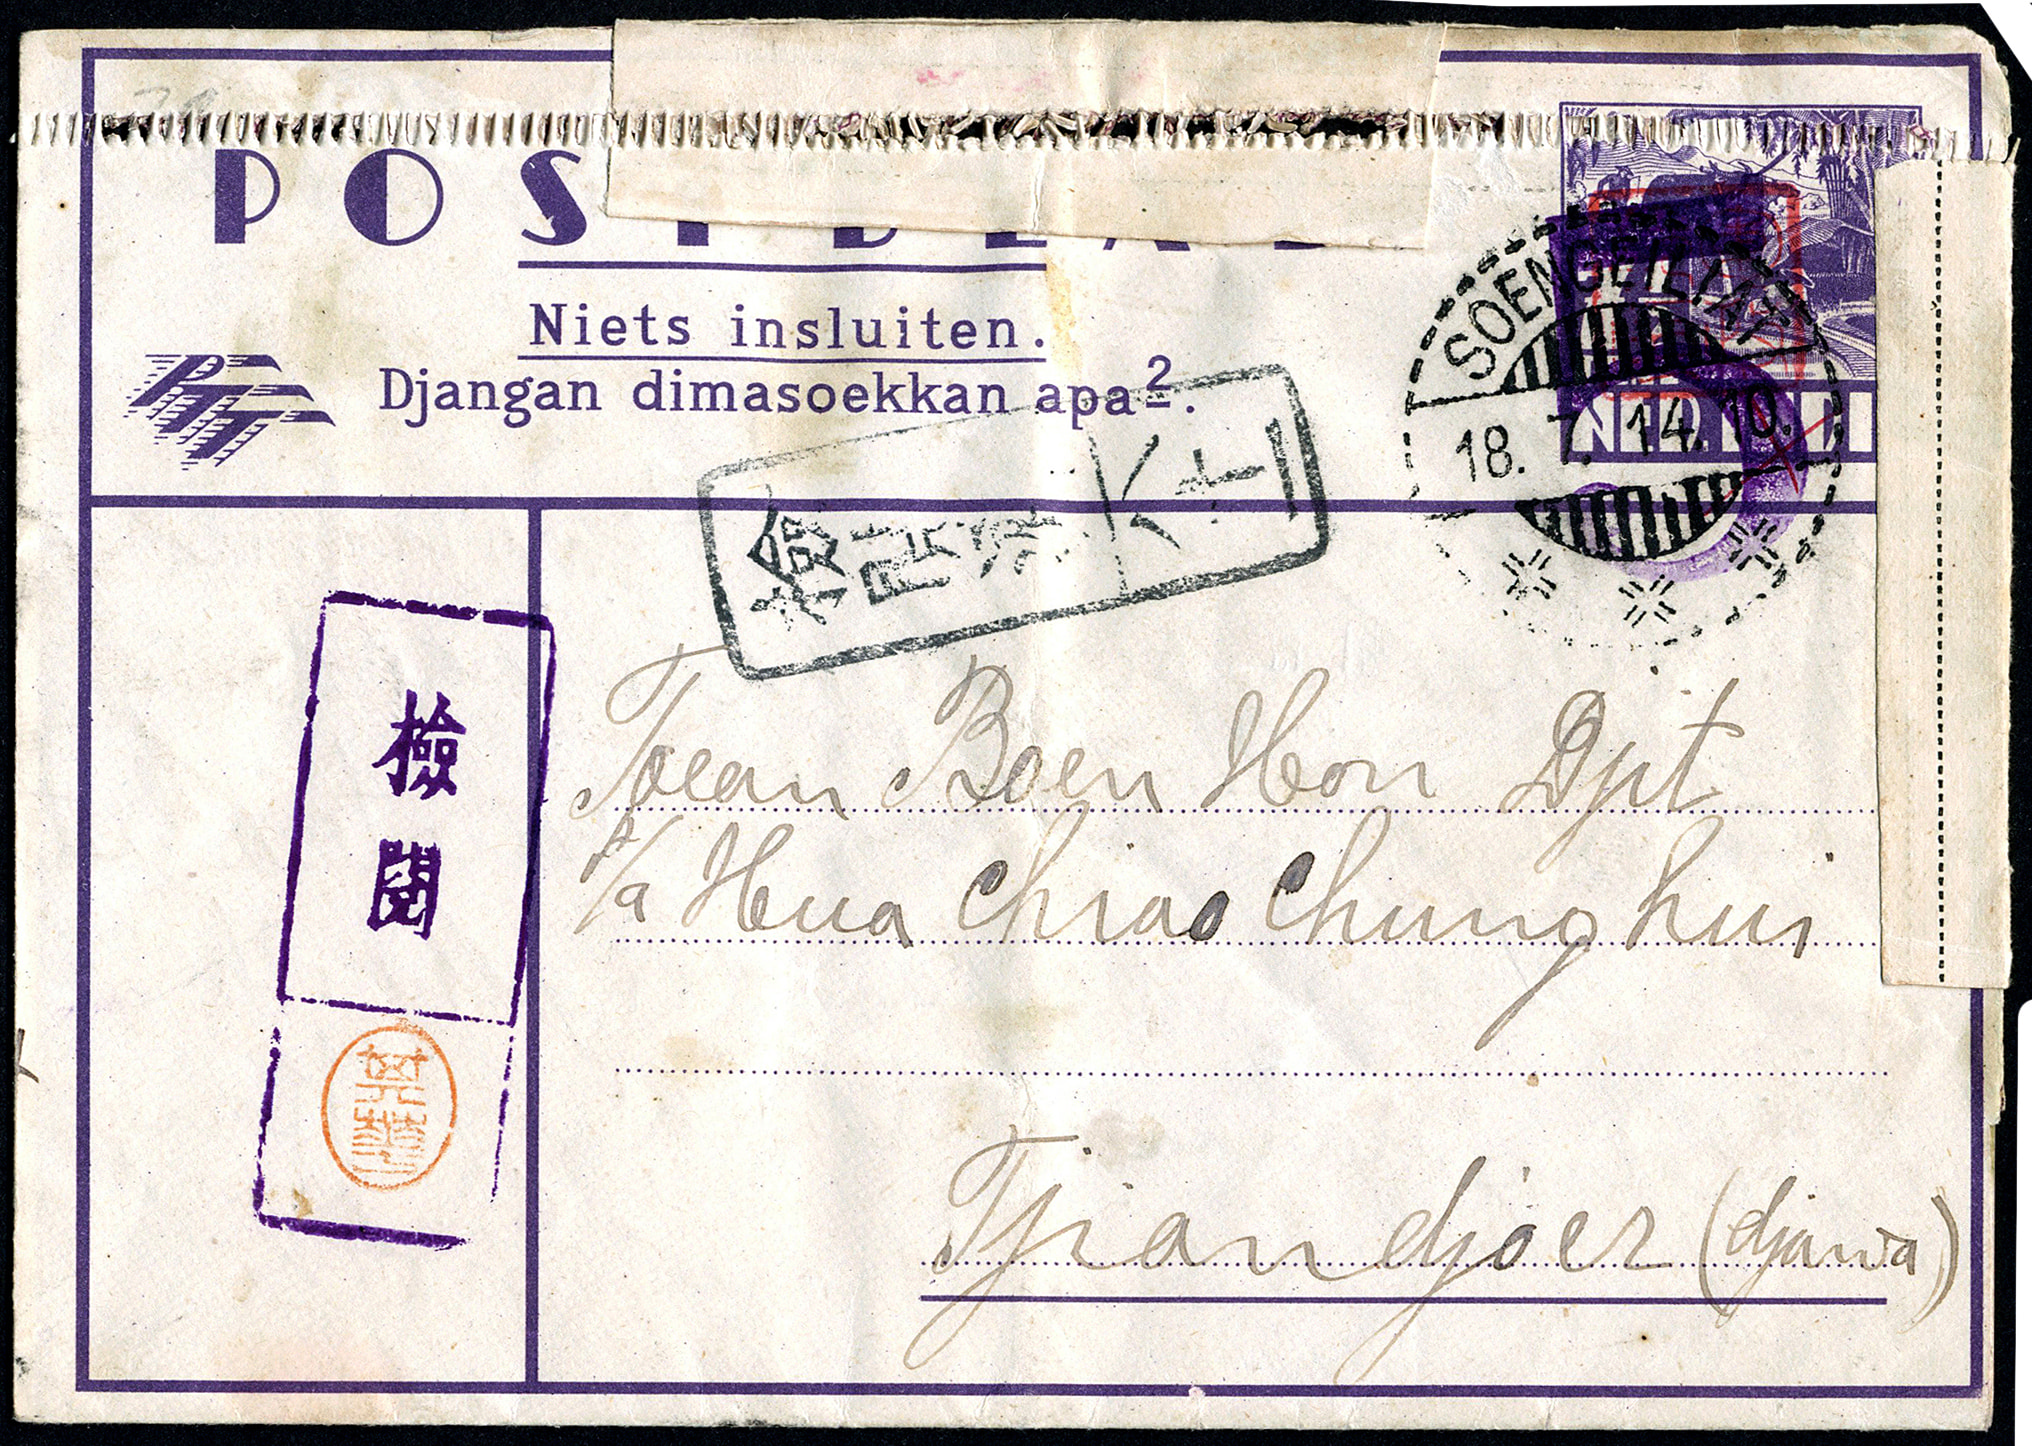 POSTBLAD
Niets insluiten.
PTT
Djangan dimasoekkan apa2.
SOENGEILIAT
18. 7. 14.10.
NED.
検閲済
檢閱
Toean Boen Hon Djit
p/a Hua Chiao Chung hui
Tjiandjoer (djawa)